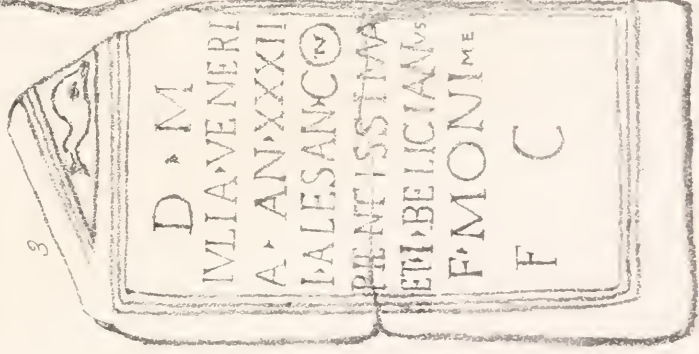 3
D ▸ M
IVLIA▸VENERI
A ▸ AN▸XXXII
I▸ALESAN▸CON
PIENTISSIMA
ET▸I▸BELICIANVS
F▸MONIME
F C